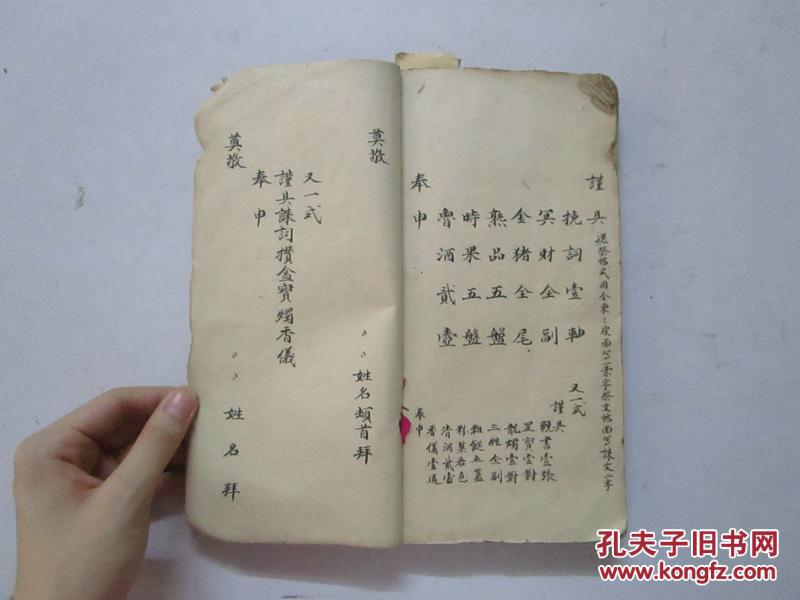 謹具
送祭帖式用全柬
挽詞壹軸
冥財全副
金猪全尾
熟品五盤
時果五盤
魯酒貳壺
奉申
又一式
謹具
輓書壹張
寶壹對
龍燭壹對
三牲全副
粗餸五簋
菓各色
清酒貳壺
香儀壹通
奉申
奠敬
姓名頓首拜
又一式
謹具誄詞攢盒寶燭香儀
奉申
奠敬
姓名拜
孔夫子旧书网
www.kongfz.com